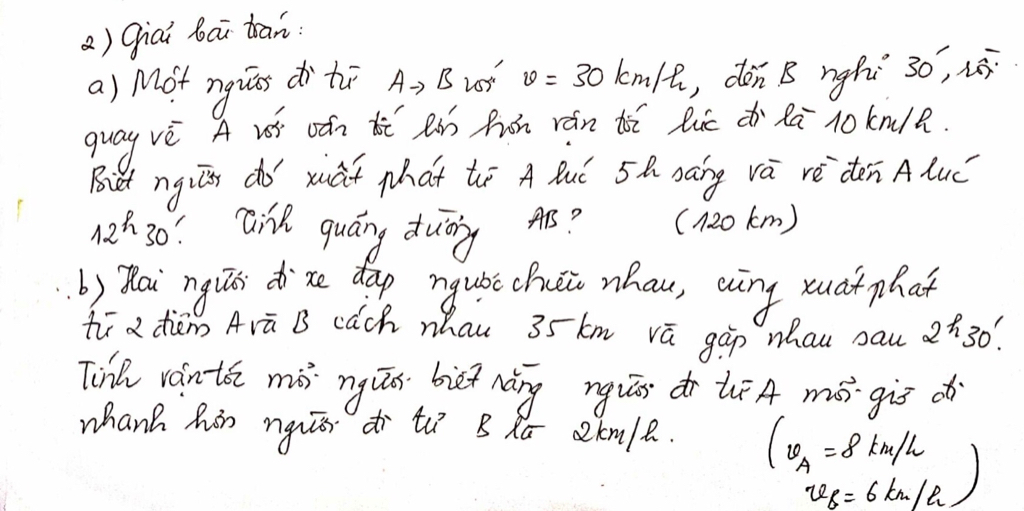 2) Giải bài toán:
a) Một người đi từ A → B với v = 30 km/h, đến B nghỉ 30', rồi
quay về A với vận tốc lớn hơn vận tốc lúc đi là 10 km/h.
Biết người đó xuất phát từ A lúc 5h sáng và về đến A lúc
12h 30'. Tính quãng đường AB? (120 km)
b) Hai người đi xe đạp ngược chiều nhau, cùng xuất phát
từ 2 điểm A và B cách nhau 35 km và gặp nhau sau 2h 30'.
Tính vận tốc mỗi người biết rằng người đi từ A mỗi giờ đi
nhanh hơn người đi từ B là 2km/h. (v_A = 8 km/h
v_B = 6 km/h)